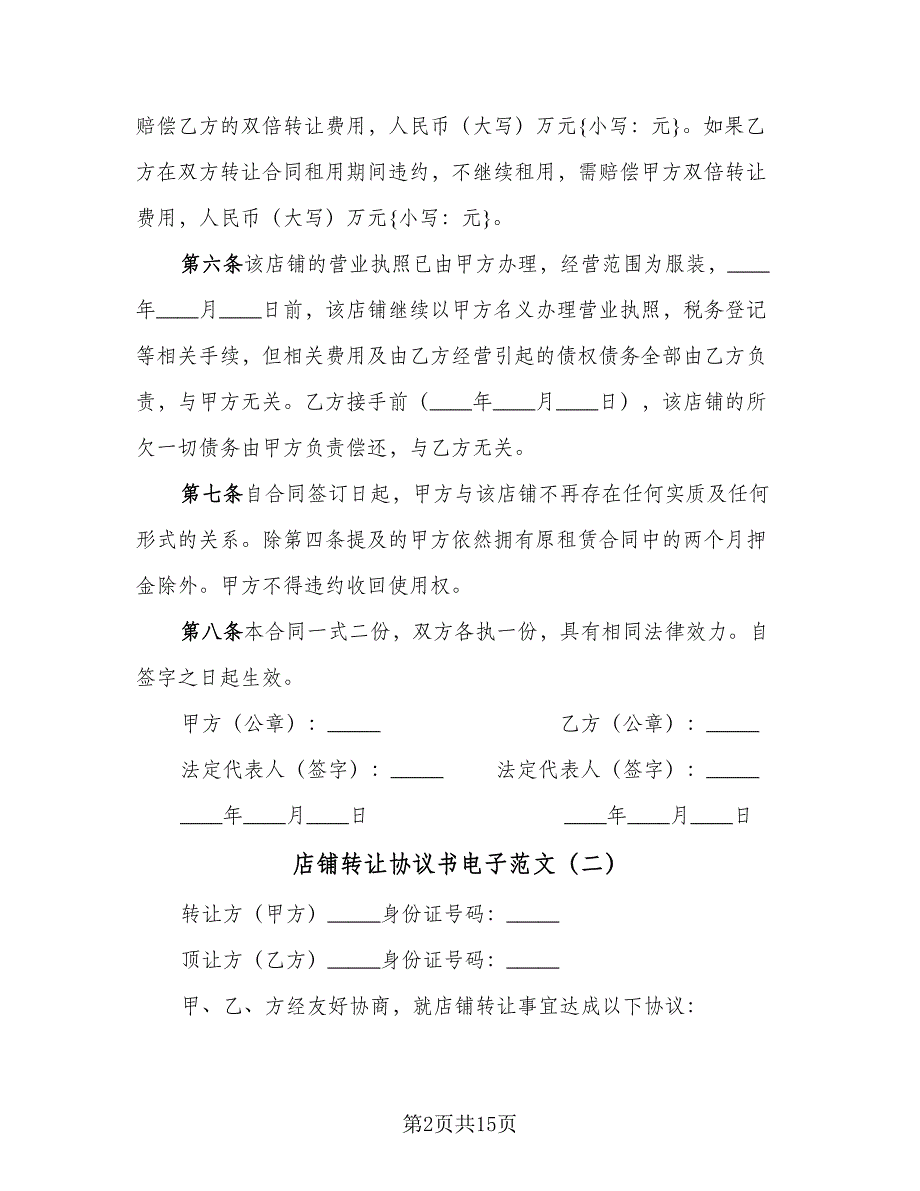 赔偿乙方的双倍转让费用，人民币（大写）万元{小写：元}。如果乙
方在双方转让合同租用期间违约，不继续租用，需赔偿甲方双倍转让
费用，人民币（大写）万元{小写：元}。
第六条该店铺的营业执照已由甲方办理，经营范围为服装，____
年____月____日前，该店铺继续以甲方名义办理营业执照，税务登记
等相关手续，但相关费用及由乙方经营引起的债权债务全部由乙方负
责，与甲方无关。乙方接手前（____年____月____日），该店铺的所
欠一切债务由甲方负责偿还，与乙方无关。
第七条自合同签订日起，甲方与该店铺不再存在任何实质及任何
形式的关系。除第四条提及的甲方依然拥有原租赁合同中的两个月押
金除外。甲方不得违约收回使用权。
第八条本合同一式二份，双方各执一份，具有相同法律效力。自
签字之日起生效。
甲方（公章）：_____ 乙方（公章）：_____
法定代表人（签字）：_____ 法定代表人（签字）：_____
____年____月____日 ____年____月____日
店铺转让协议书电子范文（二）
转让方（甲方）_____身份证号码：_____
顶让方（乙方）_____身份证号码：_____
甲、乙、方经友好协商，就店铺转让事宜达成以下协议：
第2页共15页